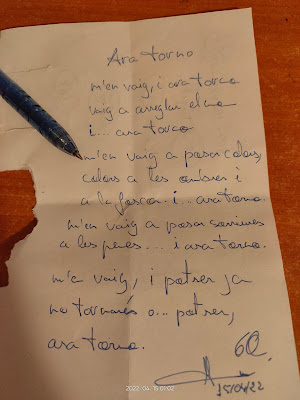 Ara torno
m'en vaig, i ara torno
vaig a arreglar el no
i... ara torno
m'en vaig a posar colors,
colors a les ombres i
a la foscor i... ara torno.
m'en vaig a posar somriures
a les penes... i ara torno.
m'en vaig, i potser ja
no tornaré o... potser,
ara torno.
6Q.
15/04/22
2022-04-15 01:02